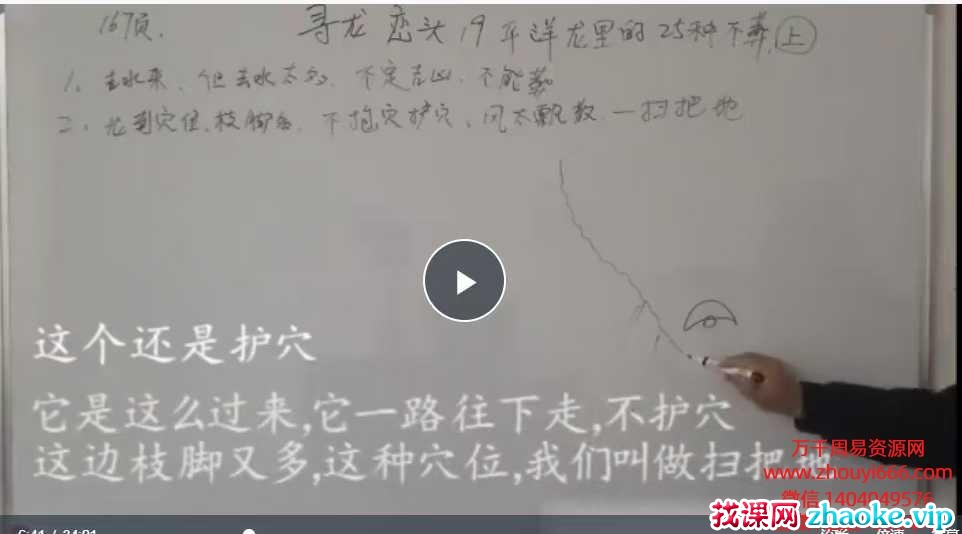 167页.
寻龙 峦头 19 平洋龙里的 25种不葬.上
1、去水来、但去水太多、不定吉凶、不能葬
2、龙到穴位、枝脚多、不抱穴护穴、风太飘散、一扫把地
这个还是护穴
它是这么过来,它一路往下走,不护穴
这边枝脚又多,这种穴位,我们叫做扫把
万千周易资源网
www.zhouyi666.com
微信 1404049576
找课网zhaoke.vip